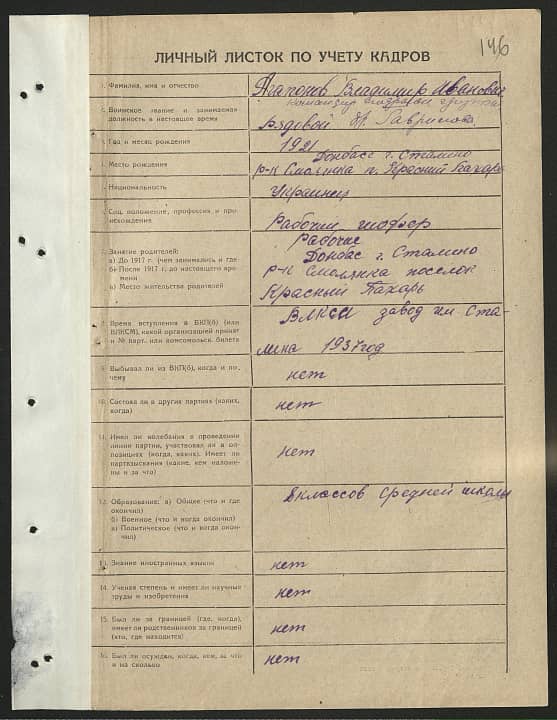 146
ЛИЧНЫЙ ЛИСТОК ПО УЧЕТУ КАДРОВ
1. Фамилия, имя и отчество
Агапонов Владимир Иванович
Командир
2. Воинское звание и занимаемая
должность в настоящее время
Рядовой Гаврилова
3. Год и месяц рождения
1921
4. Место рождения
Донбасс г. Сталино
р-к Смолянка п. Красный Пахарь
5. Национальность
Украинец
6. Соц. положение, профессия и про-
исхождение
Рабочий шофер
7. Занятие родителей:
а) До 1917 г. (чем занимались и где
б) После 1917 г. до настоящего вре-
мени
в) Место жительства родителей
Рабочие
Донбас г. Сталино
р-к Смолянка поселок
Красный Пахарь
8. Время вступления в ВКП(б) (или
ВЛКСМ), какой организацией принят
и № парт. или комсомольск. билета
ВЛКСМ завод им Ста-
лина 1937 год
9. Выбывал ли из ВКП(б), когда и по-
чему
нет
10. Состоял ли в других партиях (каких,
когда)
нет
11. Имел ли колебания в проведении
линии партии, участвовал ли в оп-
позициях (когда, каких). Имеет ли
партвзыскания (какие, кем наложе-
ны и за что)
нет
12. Образование: а) Общее (что и где
окончил)
б) Военное (что и когда окончил)
в) Политическое (что и когда окон-
чил)
8 классов средней школы
13. Знание иностранных языков
нет
14. Ученая степень и имеет ли научные
труды и изобретения
нет
15. Был ли за границей (где, когда),
имеет ли родственников за границей
(кто, где находится)
нет
16. Был ли осужден, когда, кем, за что
и на сколько
нет